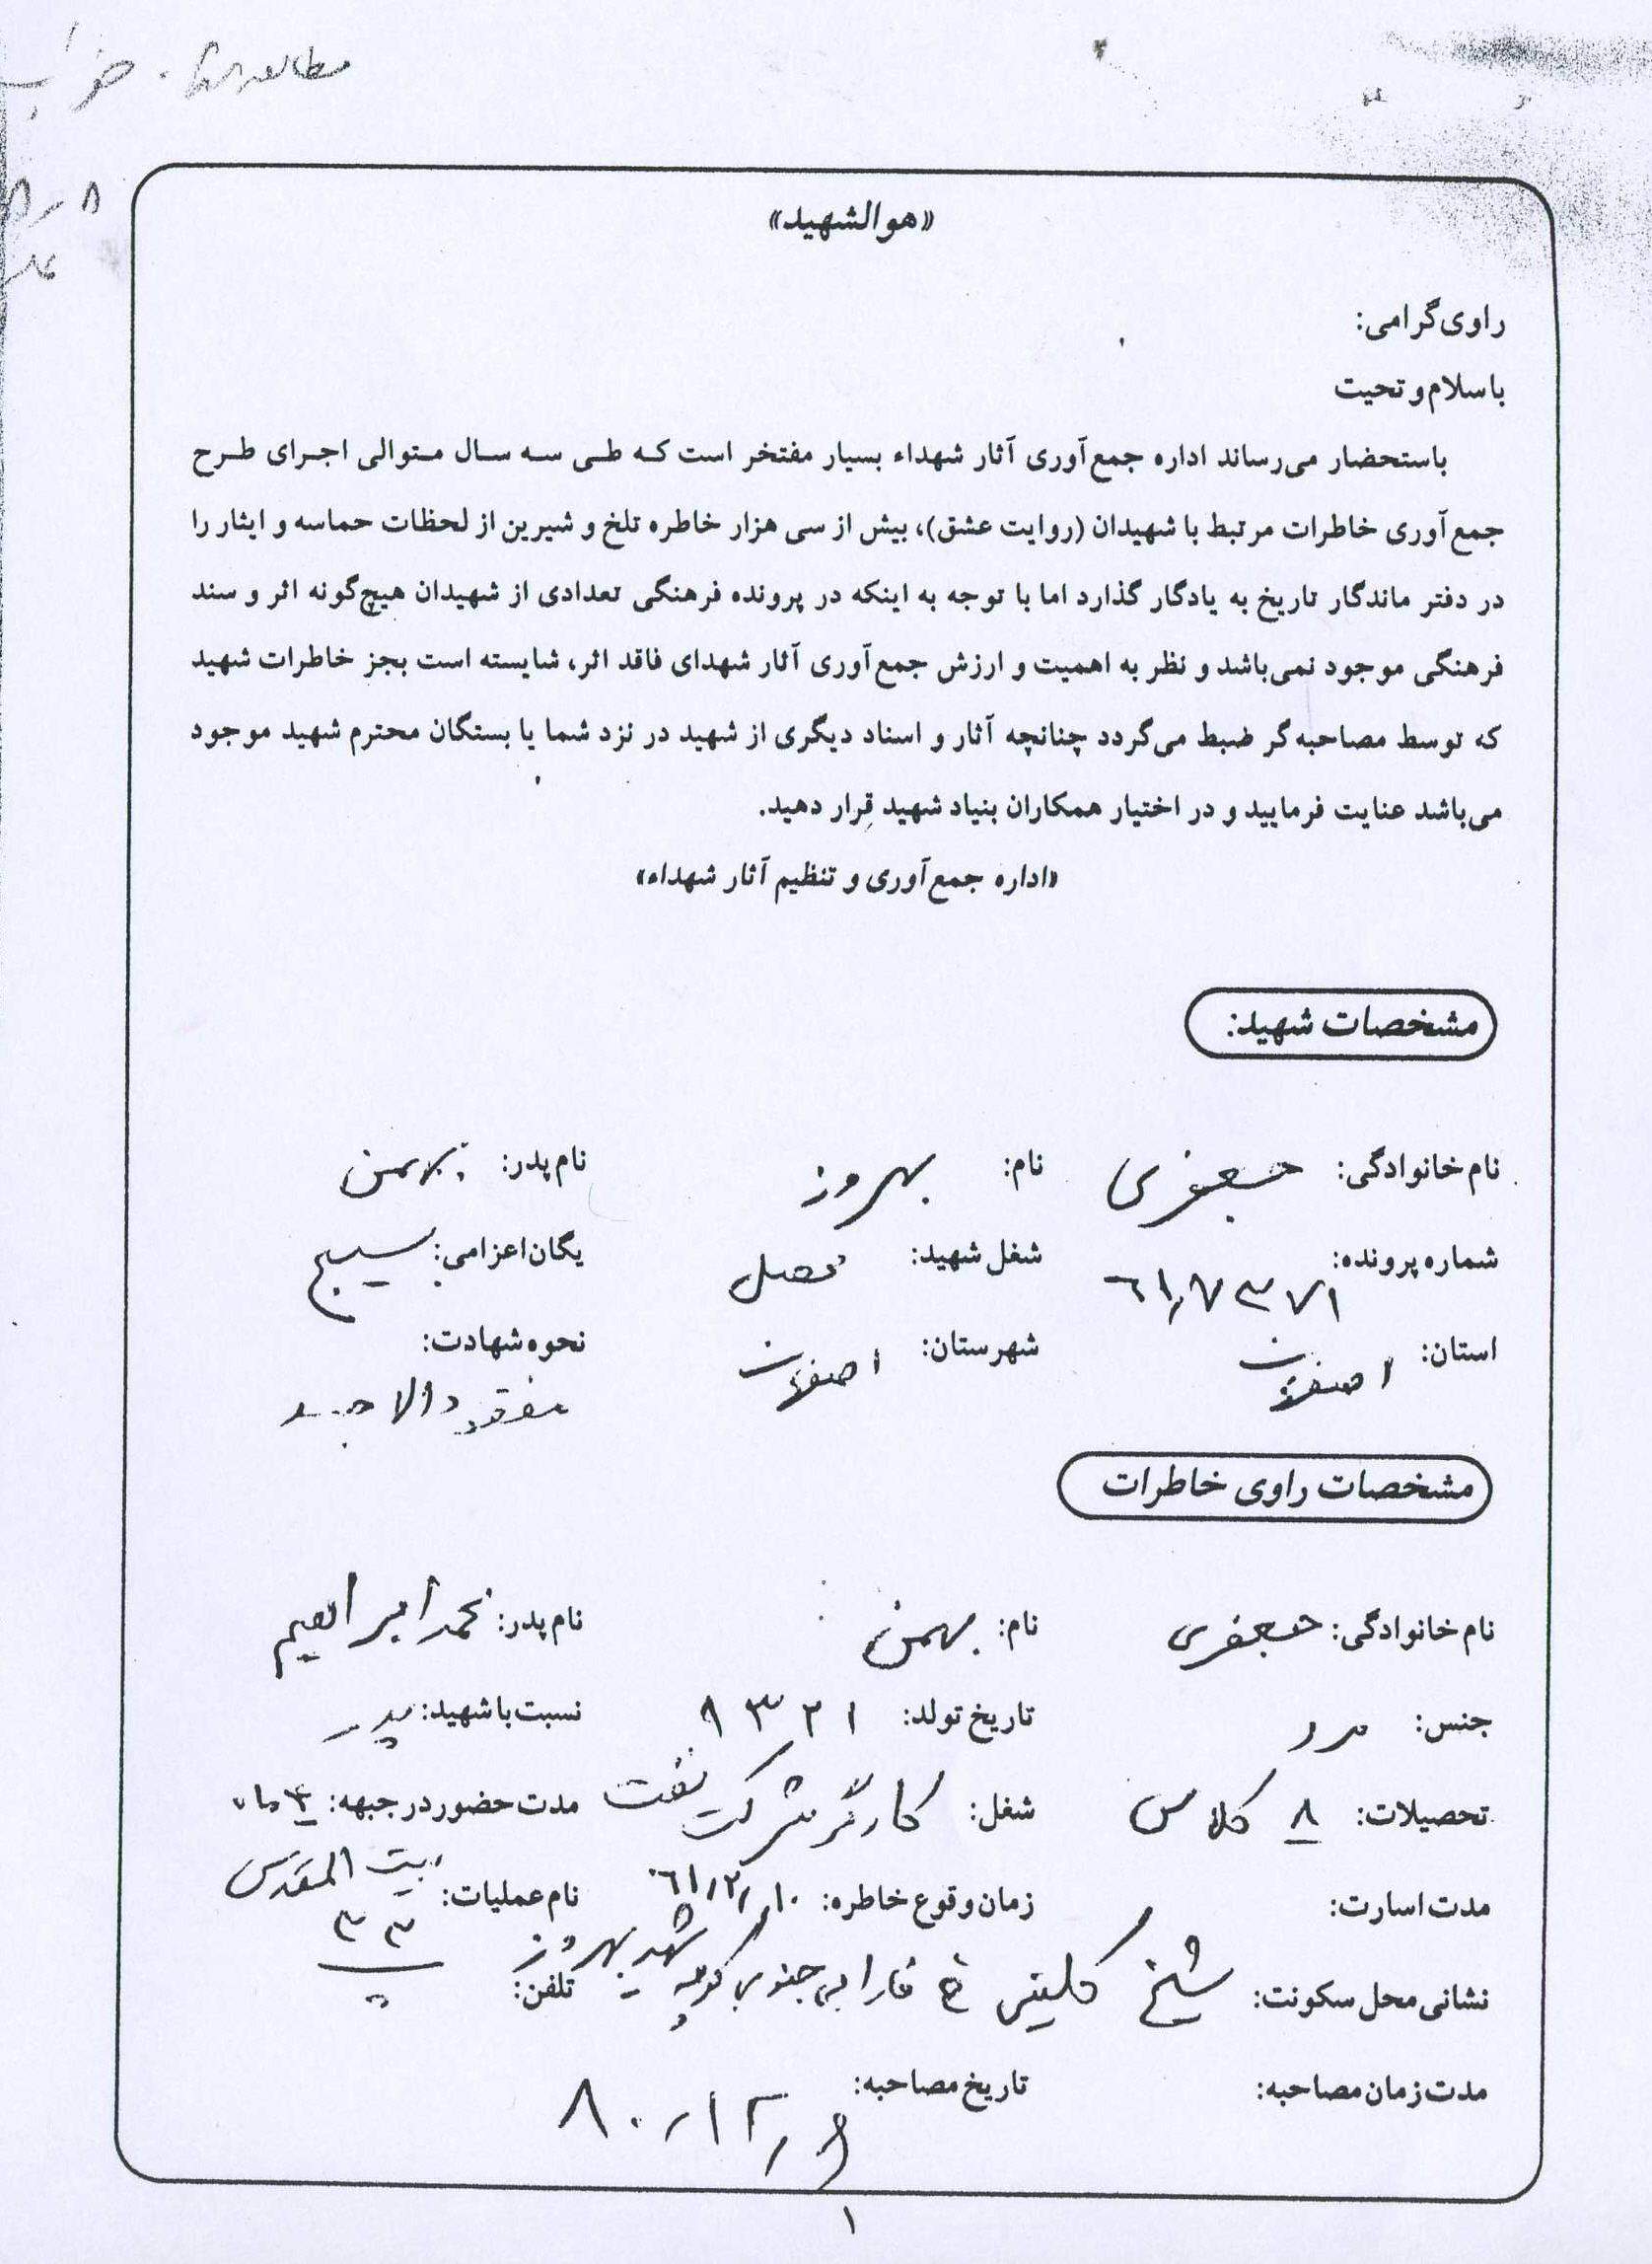 مطالعه شد. خراب
«هوالشهید»
راوی گرامی:
با سلام و تحیت
باستحضار می‌رساند اداره جمع‌آوری آثار شهداء بسیار مفتخر است که طی سه سال متوالی اجرای طرح
جمع‌آوری خاطرات مرتبط با شهیدان (روایت عشق)، بیش از سی هزار خاطره تلخ و شیرین از لحظات حماسه و ایثار را
در دفتر ماندگار تاریخ به یادگار گذارد اما با توجه به اینکه در پرونده فرهنگی تعدادی از شهیدان هیچ‌گونه اثر و سند
فرهنگی موجود نمی‌باشد و نظر به اهمیت و ارزش جمع‌آوری آثار شهدای فاقد اثر، شایسته است بجز خاطرات شهید
که توسط مصاحبه‌گر ضبط می‌گردد چنانچه آثار و اسناد دیگری از شهید در نزد شما یا بستگان محترم شهید موجود
می‌باشد عنایت فرمایید و در اختیار همکاران بنیاد شهید قرار دهید.
«اداره جمع‌آوری و تنظیم آثار شهداء»
مشخصات شهید:
نام خانوادگی: جعفری نام: بهروز نام پدر: بهمن
شماره پرونده: ۶۱/۷۳۷۱ شغل شهید: محصل یگان اعزامی: بسیج
استان: اصفهان شهرستان: اصفهان نحوه شهادت:
مفقود الاجسد
مشخصات راوی خاطرات
نام خانوادگی: جعفری نام: بهمن نام پدر: محمد ابراهیم
جنس: مرد تاریخ تولد: ۹۳۲۱ نسبت با شهید: پدر
تحصیلات: ۸ کلاس شغل: کارگر شرکت نفت مدت حضور در جبهه: ۴ ماه
مدت اسارت: زمان وقوع خاطره: ۶۱/۲/۱۰ نام عملیات: بیت المقدس
نشانی محل سکونت: شیخ کلینی خ فارابی جنوبی کوچه شهید بهروز تلفن: ۳۳
مدت زمان مصاحبه: تاریخ مصاحبه: ۸۰/۱۲/۶
۱